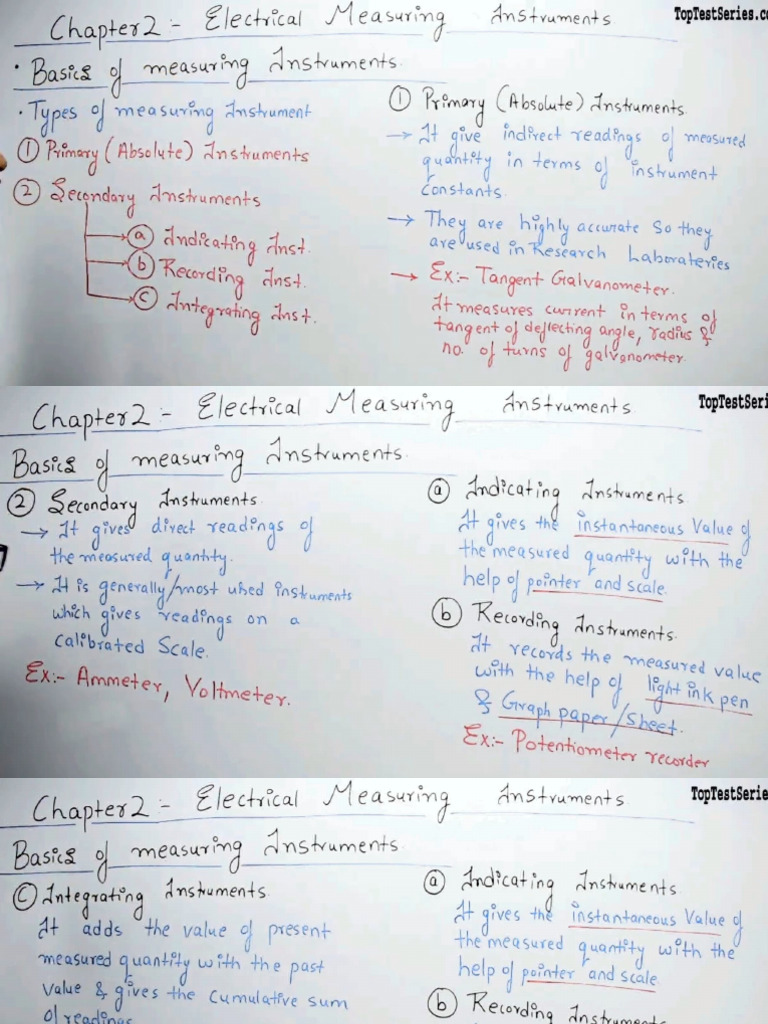 Chapter 2 :- Electrical Measuring Instruments
TopTestSeries.co
• Basics of measuring Instruments.
• Types of measuring Instrument
① Primary (Absolute) Instruments
② Secondary Instruments
ⓐ Indicating Inst.
ⓑ Recording Inst.
ⓒ Integrating Inst.
① Primary (Absolute) Instruments.
→ It give indirect readings of measured
quantity in terms of instrument
constants.
→ They are highly accurate so they
are used in Research Laborateries
→ Ex:- Tangent Galvanometer.
It measures current in terms of
tangent of deflecting angle, radius &
no. of turns of galvanometer.
Chapter 2 :- Electrical Measuring Instruments.
TopTestSeri
Basics of measuring Instruments.
② Secondary Instruments.
→ It gives direct readings of
the measured quantity.
→ It is generally/most used instruments
which gives readings on a
calibrated Scale.
Ex:- Ammeter, Voltmeter.
ⓐ Indicating Instruments
It gives the instantaneous Value of
the measured quantity with the
help of pointer and scale.
ⓑ Recording Instruments.
It records the measured value
with the help of light ink pen
& Graph paper/sheet.
Ex:- Potentiometer recorder
Chapter 2 :- Electrical Measuring Instruments
TopTestSerie
Basics of measuring Instruments.
ⓒ Integrating Instruments.
It adds the value of present
measured quantity with the past
value & gives the cumulative sum
of readings
ⓐ Indicating Instruments
It gives the instantaneous Value of
the measured quantity with the
help of pointer and scale.
ⓑ Recording Instruments